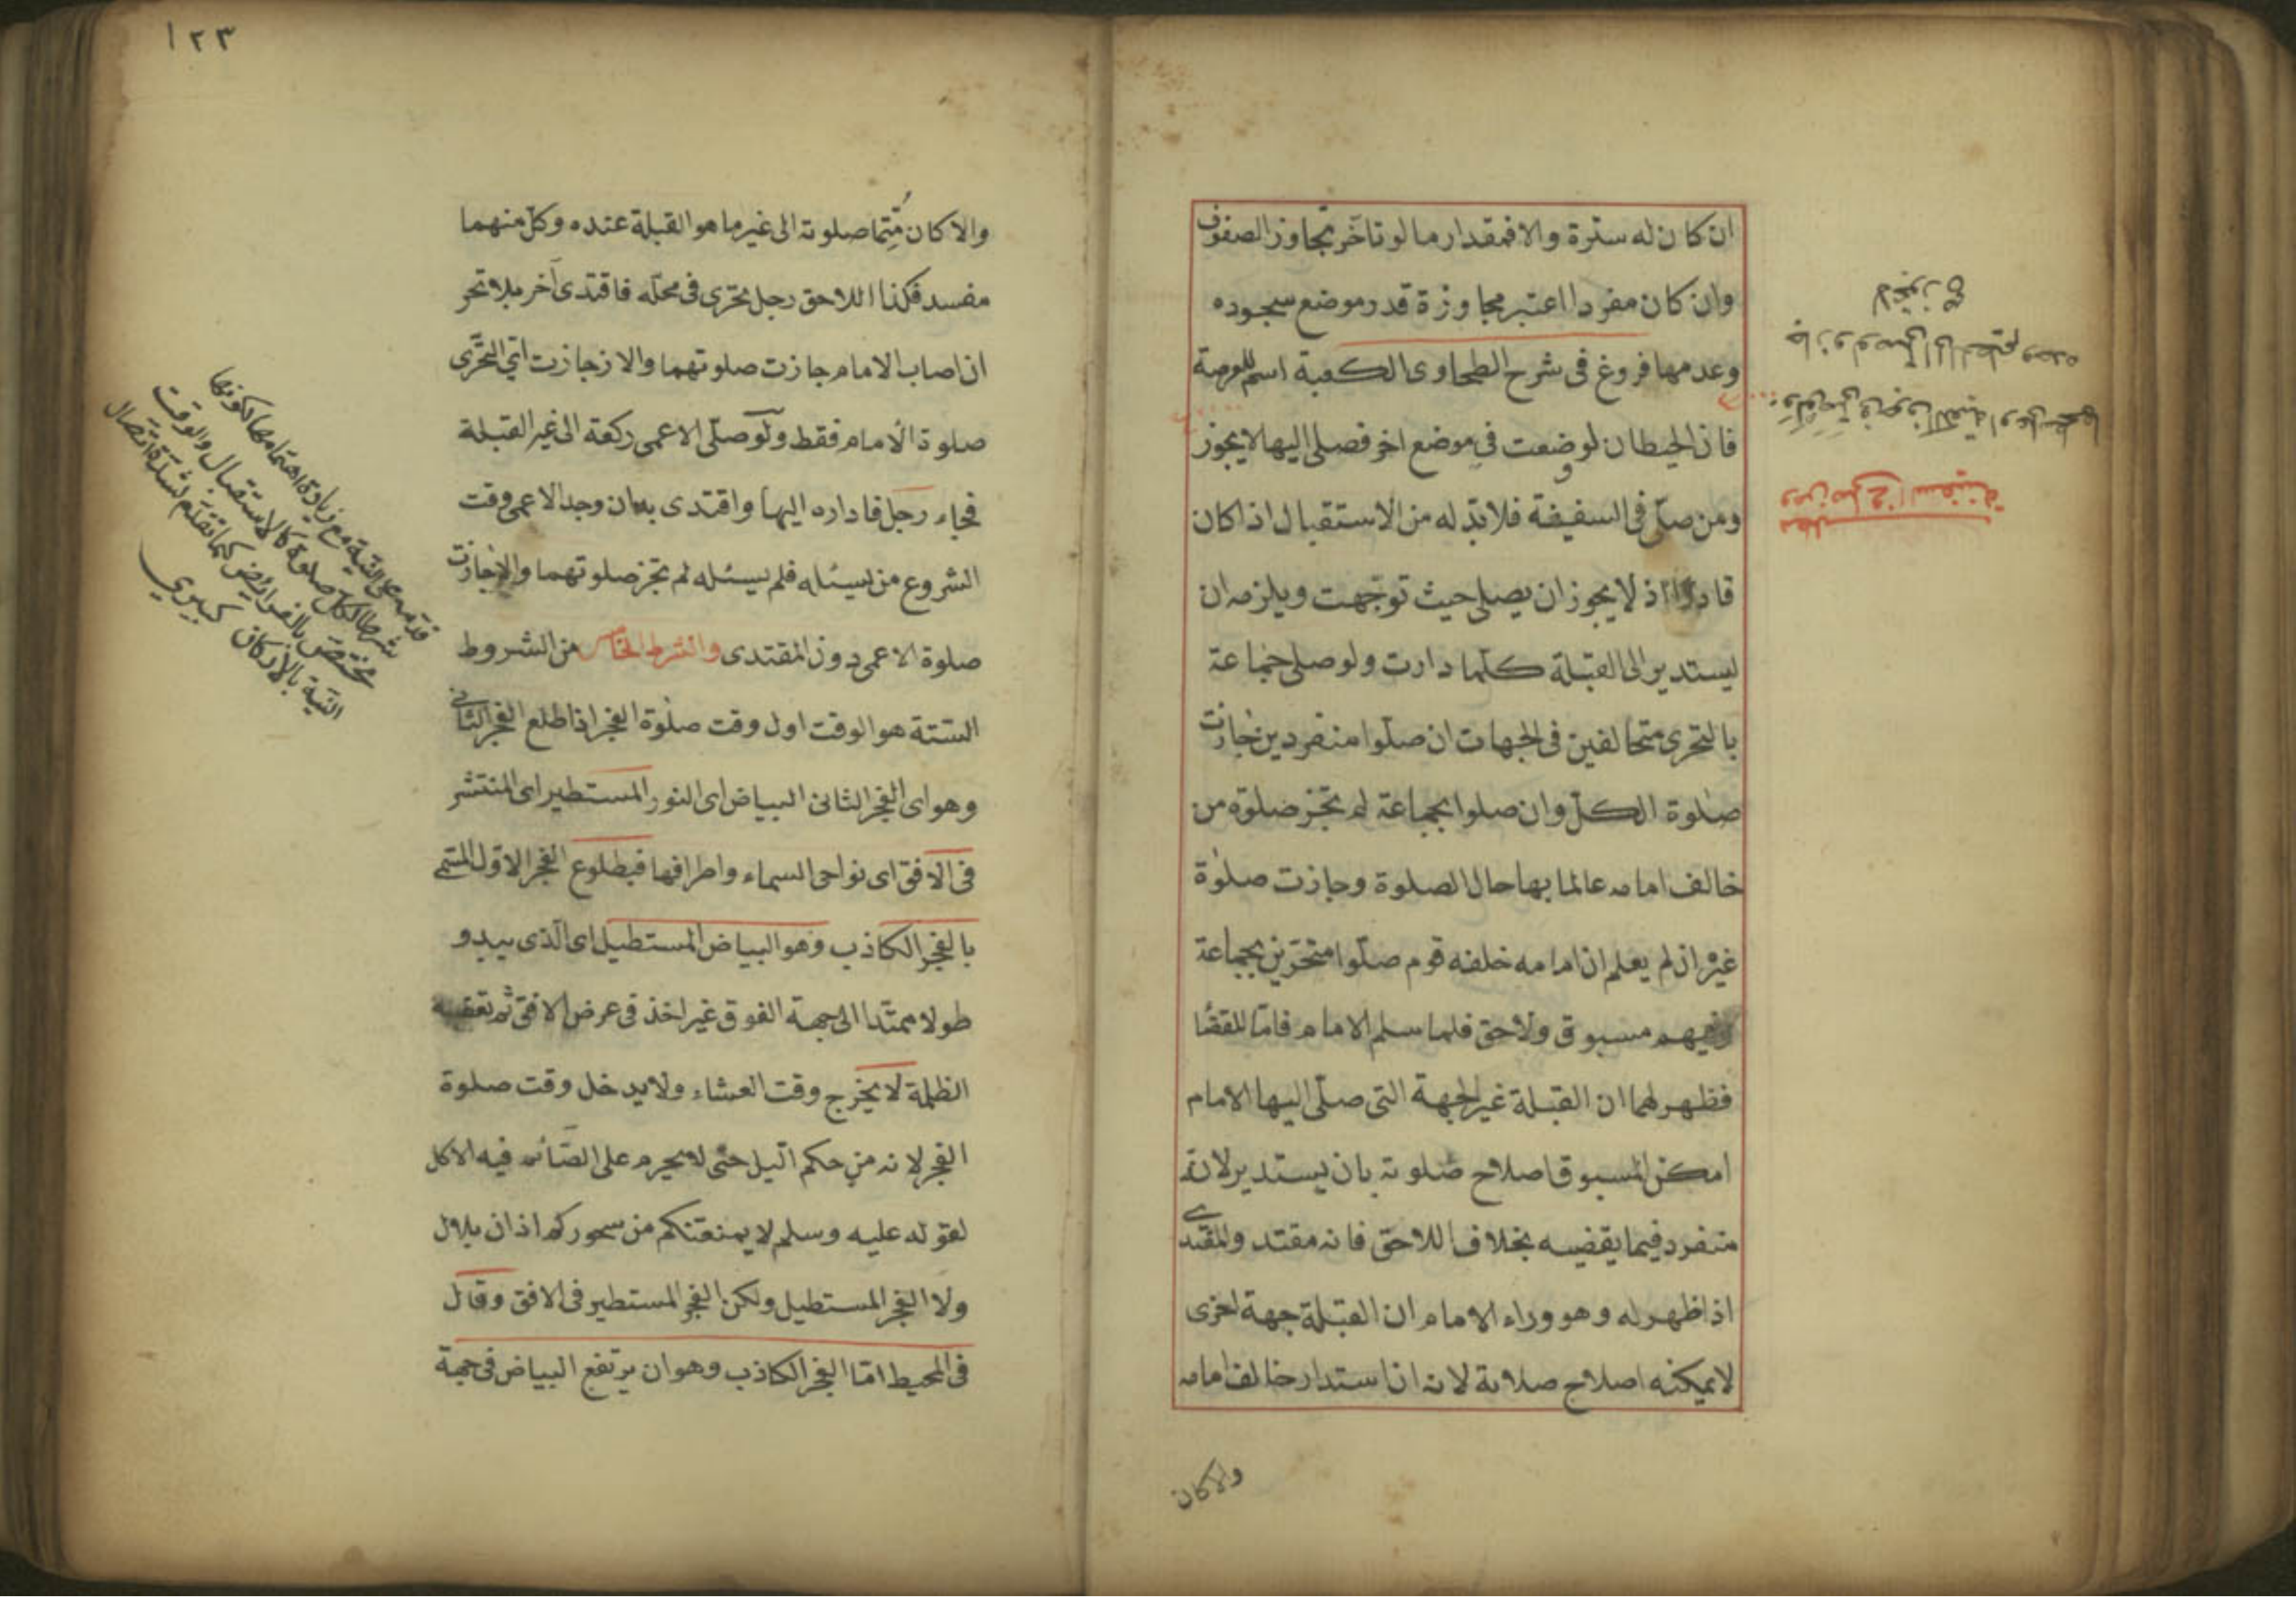 ان كان له سترة والا فمقدار ما لو تأخر تجاوز الصفوف
وان كان مفردا اعتبر مجاوزة قدر موضع سجوده
وعدمها فروع فى شرح الطحاوى الكعبة اسم للعرصة
فان الحيطان لو وضعت فى موضع اخر فصلى اليها لا يجوز
ومن صلّى فى السفينة فلا بدّ له من الاستقبال اذا كان
قادرا اذ لا يجوز ان يصلى حيث توجّهت ويلزمه ان
يستدير الى القبلة كلّما دارت ولو صلى جماعة
بالتحرى متخالفين فى الجهات ان صلّوا منفردين جازت
صلوة الكلّ وان صلوا بجماعة لم تجز صلوة من
خالف امامه عالما بها حال الصلوة وجازت صلوة
غيره ان لم يعلم ان امامه خلفه قوم صلّوا متحرّين بجماعة
وفيهم مسبوق ولاحق فلما سلم الامام قاما للقضا
فظهر لهما ان القبلة غير الجهة التى صلّى اليها الامام
امكن المسبوق اصلاح صلوته بان يستدير لانه
منفرد فيما يقضيه بخلاف اللاحق فانه مقتد والمقتدى
اذا ظهر له وهو وراء الامام ان القبلة جهة اخرى
لا يمكنه اصلاح صلاته لانه ان استدار خالف امامه
والا كان
ولو صلى فى جوف الكعبة او على سطحها
جاز ولو صلى الى الحطيم وحده
لا يجوز
ومن صلى فى السفينة
مطلب
١٢٣
والا كان مُتِمّا صلوته الى غير ما هو القبلة عنده وكلّ منهما
مفسد فكذا اللاحق رجل تحرّى فى محلّه فاقتدى آخر بلا تحر
ان اصاب الامام جازت صلوتهما والا جازت اي التحرّى
صلوة الامام فقط ولو صلّى الاعمى ركعة الى غير القبلة
فجاء رجل فاداره اليها واقتدى به ان وجد الاعمى وقت
الشروع من يسئله فلم يسئله لم تجز صلوتهما والا جازت
صلوة الاعمى دون المقتدى والشرط الخامس من الشروط
الستة هو الوقت اول وقت صلوة الفجر اذا طلع الفجر الثانى
وهو اى الفجر الثانى البياض اى النور المستطير اى المنتشر
فى الافق اى نواحى السماء واطرافها فبطلوع الفجر الاوّل المسمى
بالفجر الكاذب وهو البياض المستطيل اى الّذى يبدو
طولا ممتّدا الى جهة الفوق غير اخذ فى عرض الافق ثم تعقبه
الظلمة لا يخرج وقت العشاء ولا يدخل وقت صلوة
الفجر لانه من حكم الّيل حتّى لا يحرم على الصّائم فيه الاكل
لقوله عليه وسلم لا يمنعنّكم من سحوركم اذان بلال
ولا الفجر المستطيل ولكن الفجر المستطير فى الافق وقال
فى المحيط امّا الفجر الكاذب وهو ان يرتفع البياض فى جهة
قدّمه على النيّة مع زيادة اهتمامها لكونها
شرطا لكلّ صلوة كالاستقبال والوقت
مختصّ بالفرائض كما تقدّم لشدّة اتصال
النيّة بالأركان كبيري